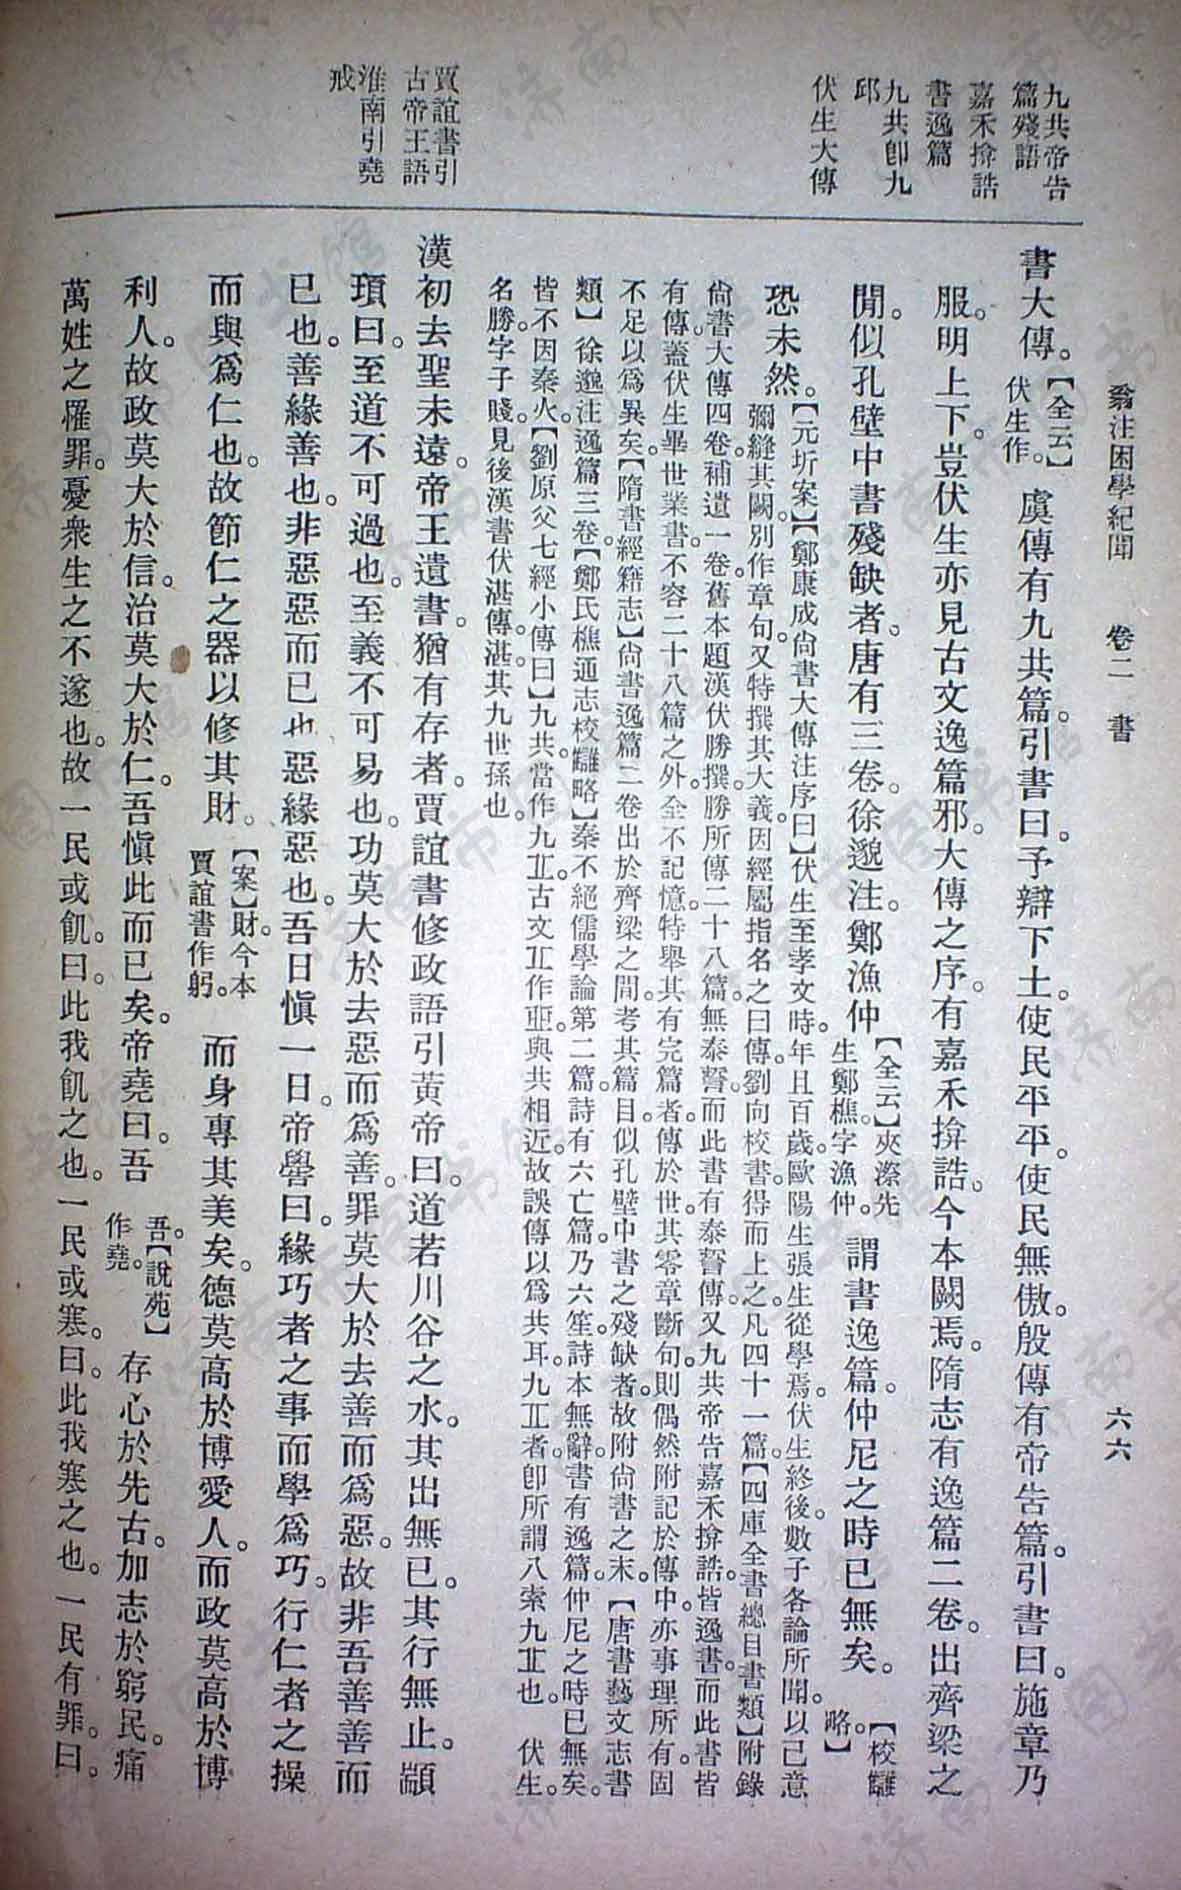 翁注困學紀聞　卷二　書　六六
九共帝告
篇殘語
嘉禾揜誥
書逸篇
九共卽九
邱
伏生大傳
賈誼書引
古帝王語
淮南引堯
戒
書大傳。【全云】伏生作。虞傳有九共篇。引書曰。予辯下土。使民平平。使民無傲。殷傳有帝告篇。引書曰。施章乃
服。明上下。豈伏生亦見古文逸篇邪。大傳之序。有嘉禾揜誥。今本闕焉。隋志有逸篇二卷。出齊梁之
閒。似孔壁中書殘缺者。唐有三卷。徐邈注。鄭漁仲【全云】夾漈先生鄭樵。字漁仲。謂書逸篇。仲尼之時已無矣。【校讎略】
恐未然。【元圻案】【鄭康成尙書大傳注序曰】伏生至孝文時。年且百歲。歐陽生張生從學焉。伏生終後。數子各論所聞。以己意
彌縫其闕。別作章句。又特撰其大義。因經屬指名之曰傳。劉向校書。得而上之。凡四十一篇。【四庫全書總目書類】附錄
尙書大傳四卷。補遺一卷。舊本題漢伏勝撰。勝所傳二十八篇。無泰誓。而此書有泰誓傳。又九共帝告嘉禾揜誥。皆逸書。而此書皆
有傳。蓋伏生畢世業書。不容二十八篇之外。全不記憶。特舉其有完篇者。傳於世。其零章斷句。則偶然附記於傳中。亦事理所有。固
不足以爲異矣。【隋書經籍志】尙書逸篇二卷出於齊梁之間。考其篇目。似孔壁中書之殘缺者。故附尙書之末。【唐書藝文志書
類】徐邈注逸篇三卷。【鄭氏樵通志校讎略】秦不絕儒學論第二篇。詩有六亡篇。乃六笙。詩本無辭。書有逸篇。仲尼之時已無矣。
皆不因秦火。【劉原父七經小傳曰】九共。當作九㠪。古文㠪作𠀉。與共相近。故誤傳以爲共耳。九㠪者。卽所謂八索九㠪也。伏生。
名勝。字子賤。見後漢書伏湛傳。湛。其九世孫也。
漢初去聖未遠。帝王遺書。猶有存者。賈誼書修政語引黃帝曰。道若川谷之水。其出無已。其行無止。顓
頊曰。至道不可過也。至義不可易也。功莫大於去惡而爲善。罪莫大於去善而爲惡。故非吾善善而
已也。善緣善也。非惡惡而已也。惡緣惡也。吾日愼一日。帝嚳曰。緣巧者之事而學爲巧。行仁者之操
而與爲仁也。故節仁之器以修其財。【案】財。今本賈誼書作躬。而身專其美矣。德莫高於博愛人。而政莫高於博
利人。故政莫大於信。治莫大於仁。吾愼此而已矣。帝堯曰。吾吾。【說苑】作堯。存心於先古。加志於窮民。痛
萬姓之罹罪。憂衆生之不遂也。故一民或飢。曰。此我飢之也。一民或寒。曰。此我寒之也。一民有罪。曰。